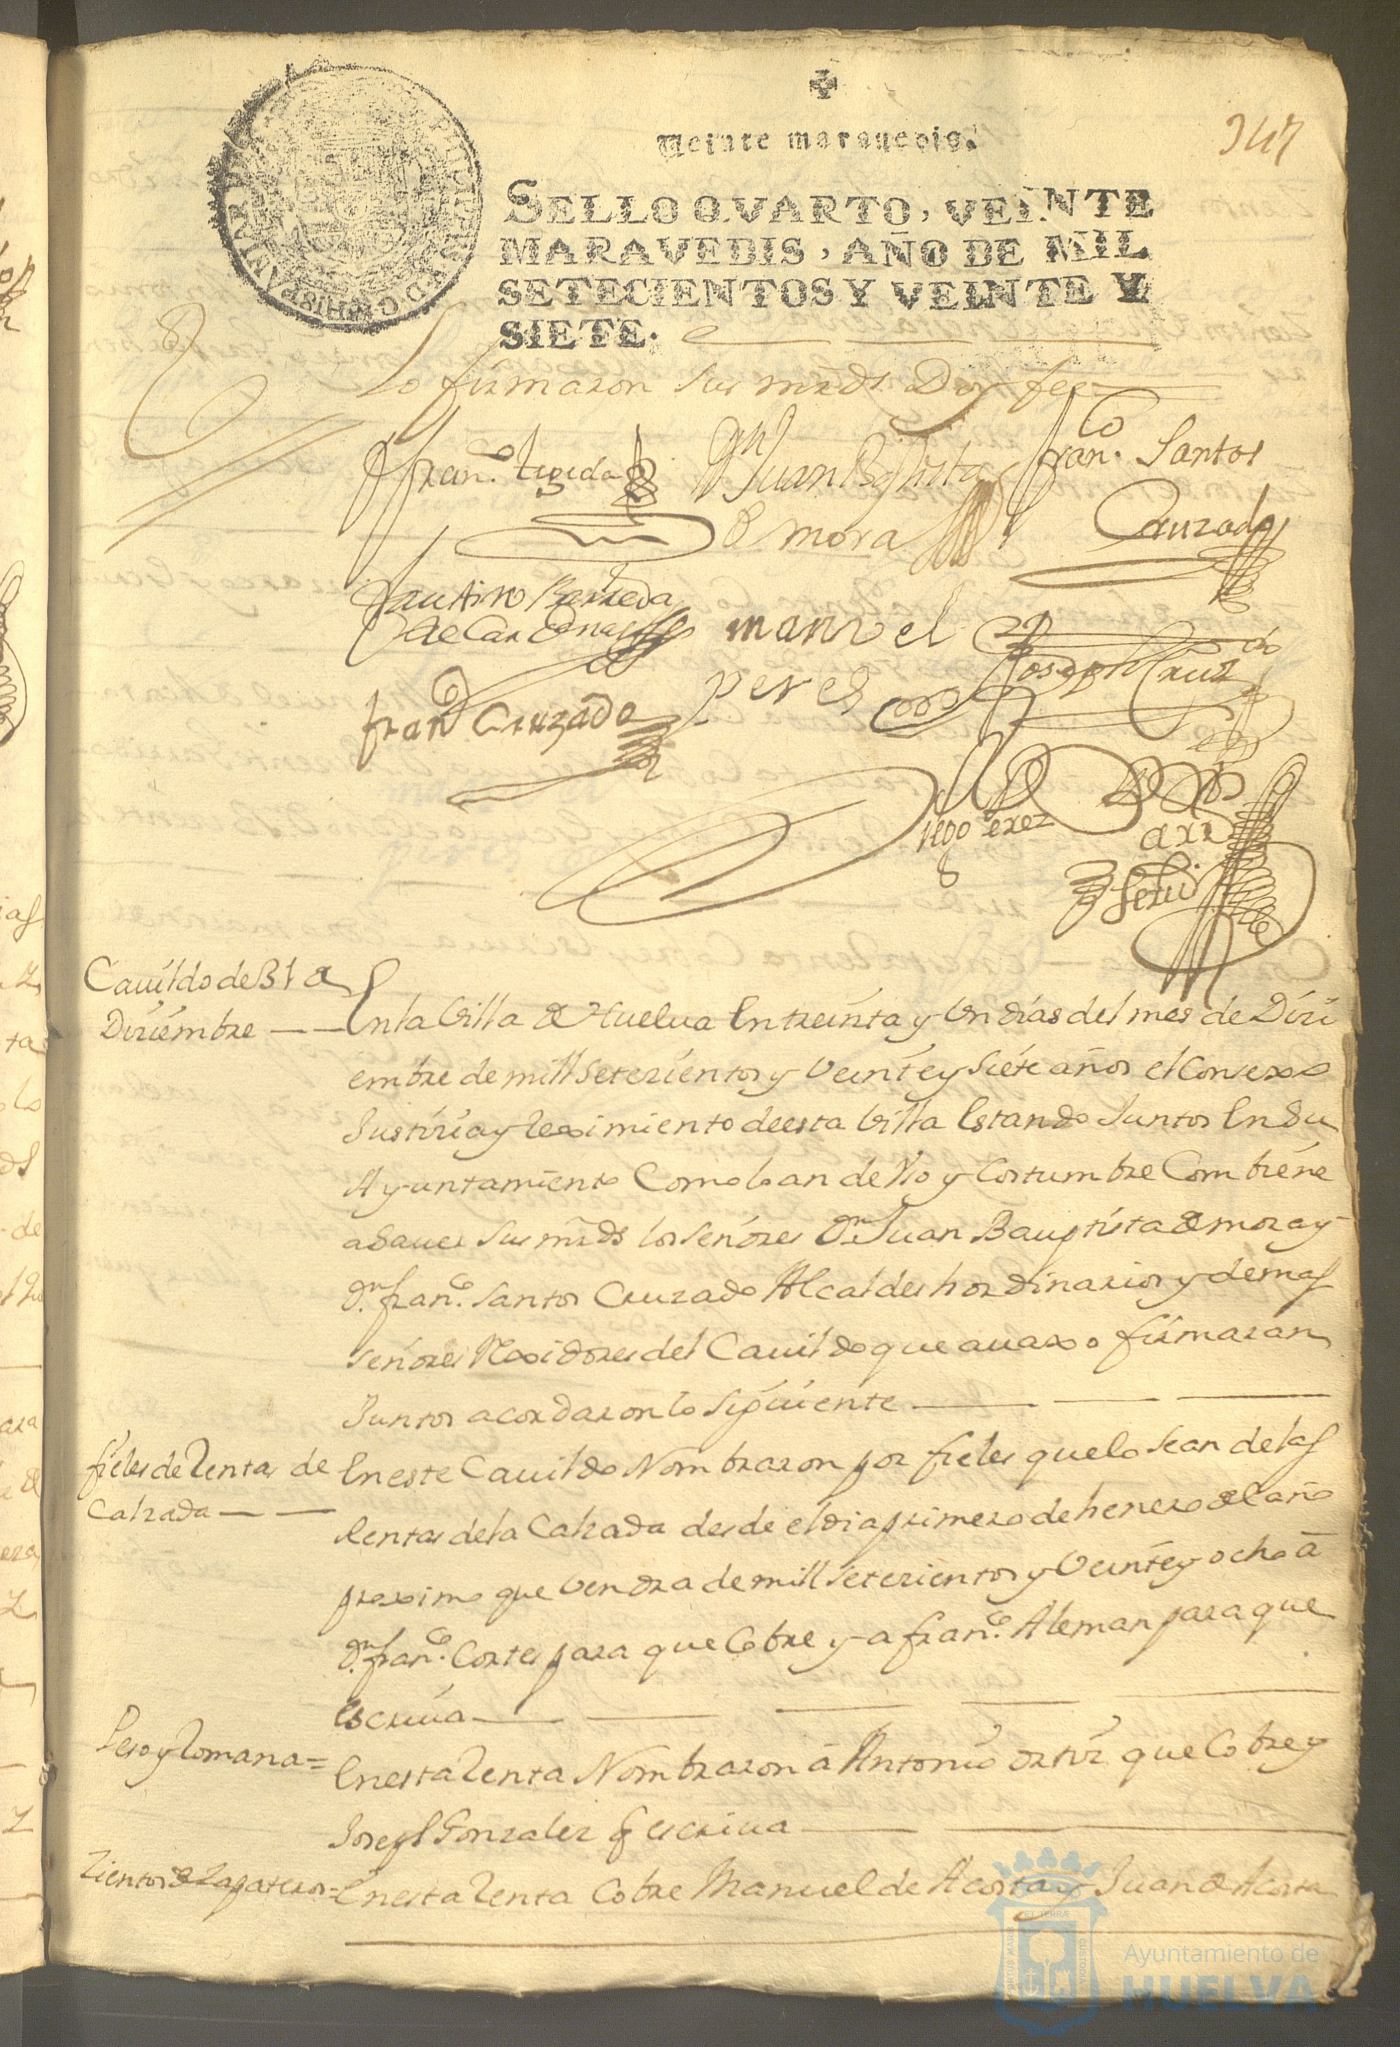 347
Veinte maravedis.
SELLO QVARTO, VEINTE
MARAVEDIS, AÑO DE MIL
SETECIENTOS Y VEINTE Y
SIETE.
Lo firmaron sus mrds Doy fee
fran.co tegeda
Dn Juan Baptista
de mora
fran.co Santos
Cruzado
faustino Barreda
de Cardenas
manuel
peres
Joseph Cruz
fran.co Cruzado
Diego Perez
Cauildo de 31 de
Diziembre
En la Villa de Huelua En treinta y Un dias del mes de Dizi
embre de mill Setezientos y Veinte y Siete años el Consexo
Justizia y Reximiento de esta Villa Estando Juntos En Su
Ayuntamiento Como lo an de Vso y Costumbre Combiene
a Sauer Sus mrds los Señores Dn Juan Bauptista de mora y
dn fran.co Santos Cruzado Alcaldes hordinarios y demas
Señores Rexidores del Cauildo que auaxo firmaran
Juntos acordaron lo Siguiente
fieles de Rentas de
Calzada
En este Cauildo Nombraron por fieles que lo Sean de las
Rentas de la Calzada desde el dia primero de henero del año
proximo que Vendra de mill Setezientos y Veinte y ocho â
dn fran.co Cortes para que Cobre y a fran.co Aleman para que
Escriua
Peso y Romana =
En esta Renta Nombraron â Antonio ortiz que Cobre y
Joseph Gonzalez q escriua
Zientos de Zapateros =
En esta Renta Cobre Manuel de Acosta y Juan de Acosta
Ayuntamiento de
HUELVA